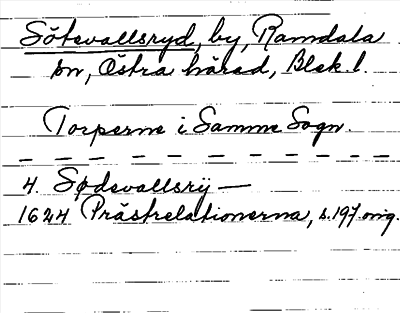 Sötevallsryd, by, Ramdala
sn, Östra härad, Blek. l.
Torperne i Samme Sogn.
4. Sødevallsrÿ —
1624 Prästrelationerna, s. 197. orig.